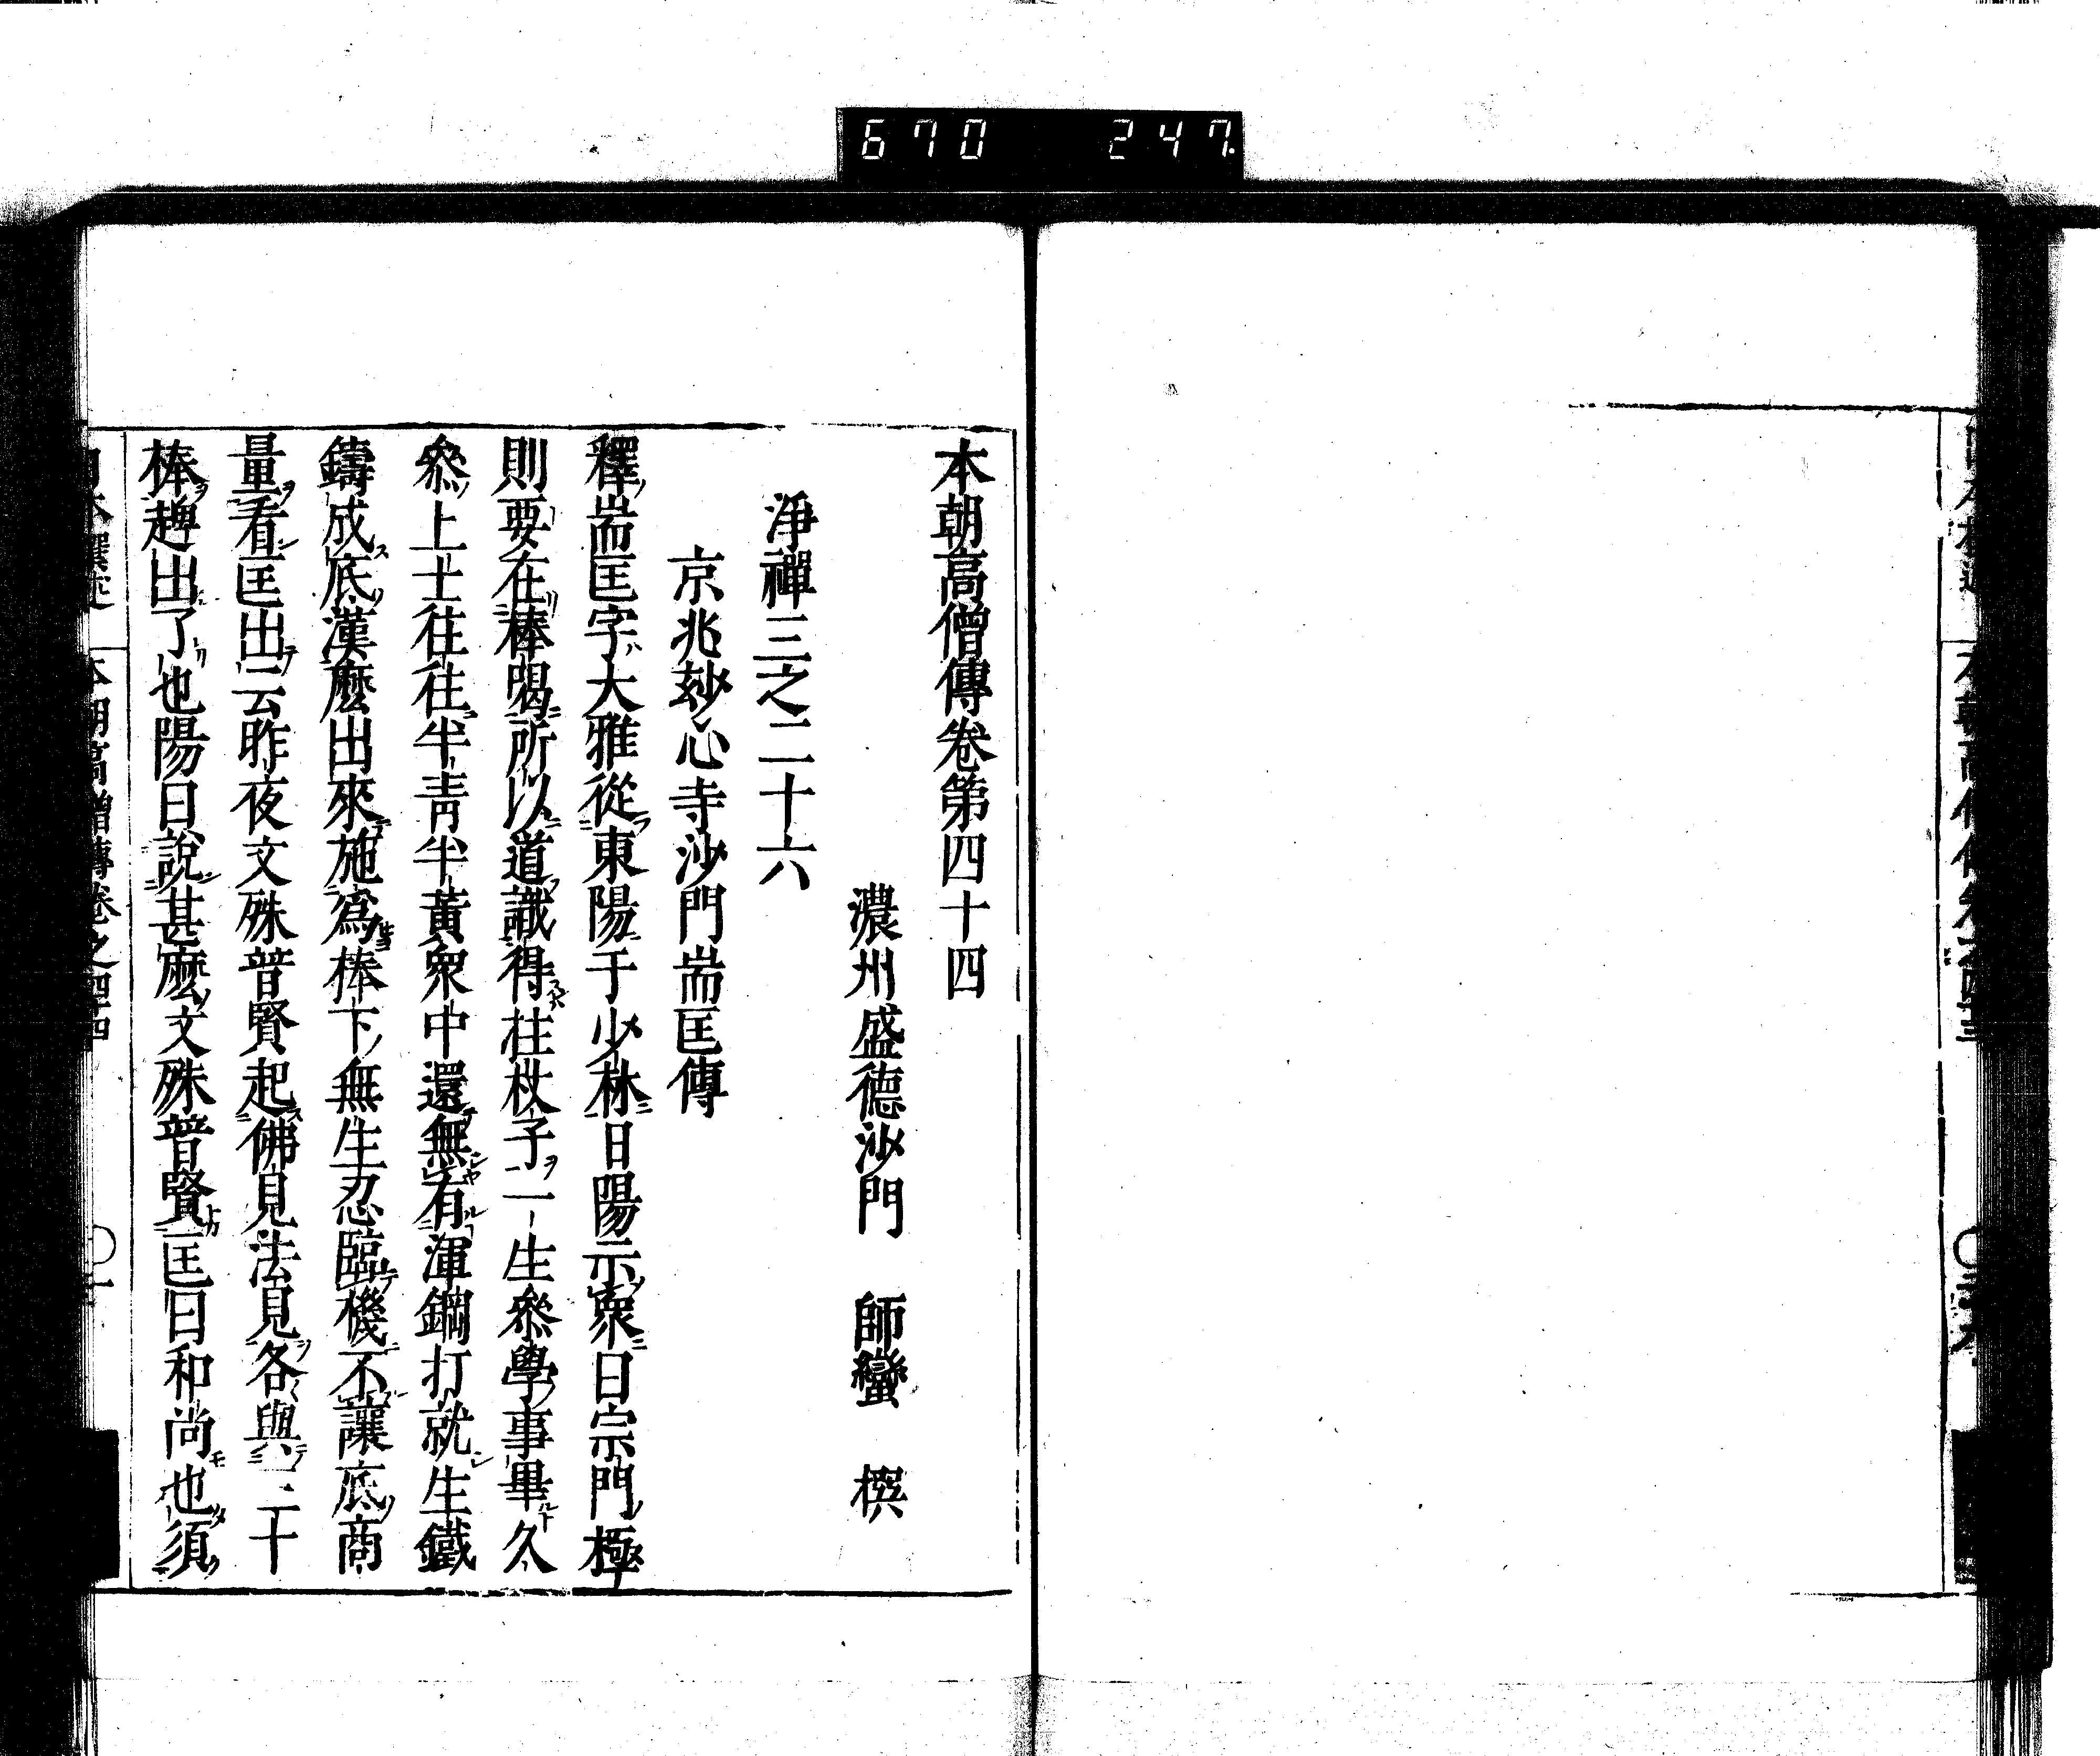 670 247
本朝高僧傳卷第四十四
濃州盛德沙門 師蠻 撰
淨禪三之二十六
京兆玅心寺沙門耑匡傳
釋耑匡字大雅從東陽于少林日陽示衆曰宗門極
則要在棒喝所以道識得柱杖子一生叅學事畢久
叅上士往往半青半黃衆中還無有渾鋼打就生鐵
鑄成底漢麼出來施爲棒下無生忍臨機不讓底商
量看匡出云昨夜文殊普賢起佛見法見各與二十
棒趂出了也陽曰說甚麽文殊普賢匡曰和尚也須
本朝高僧傳卷之四十四